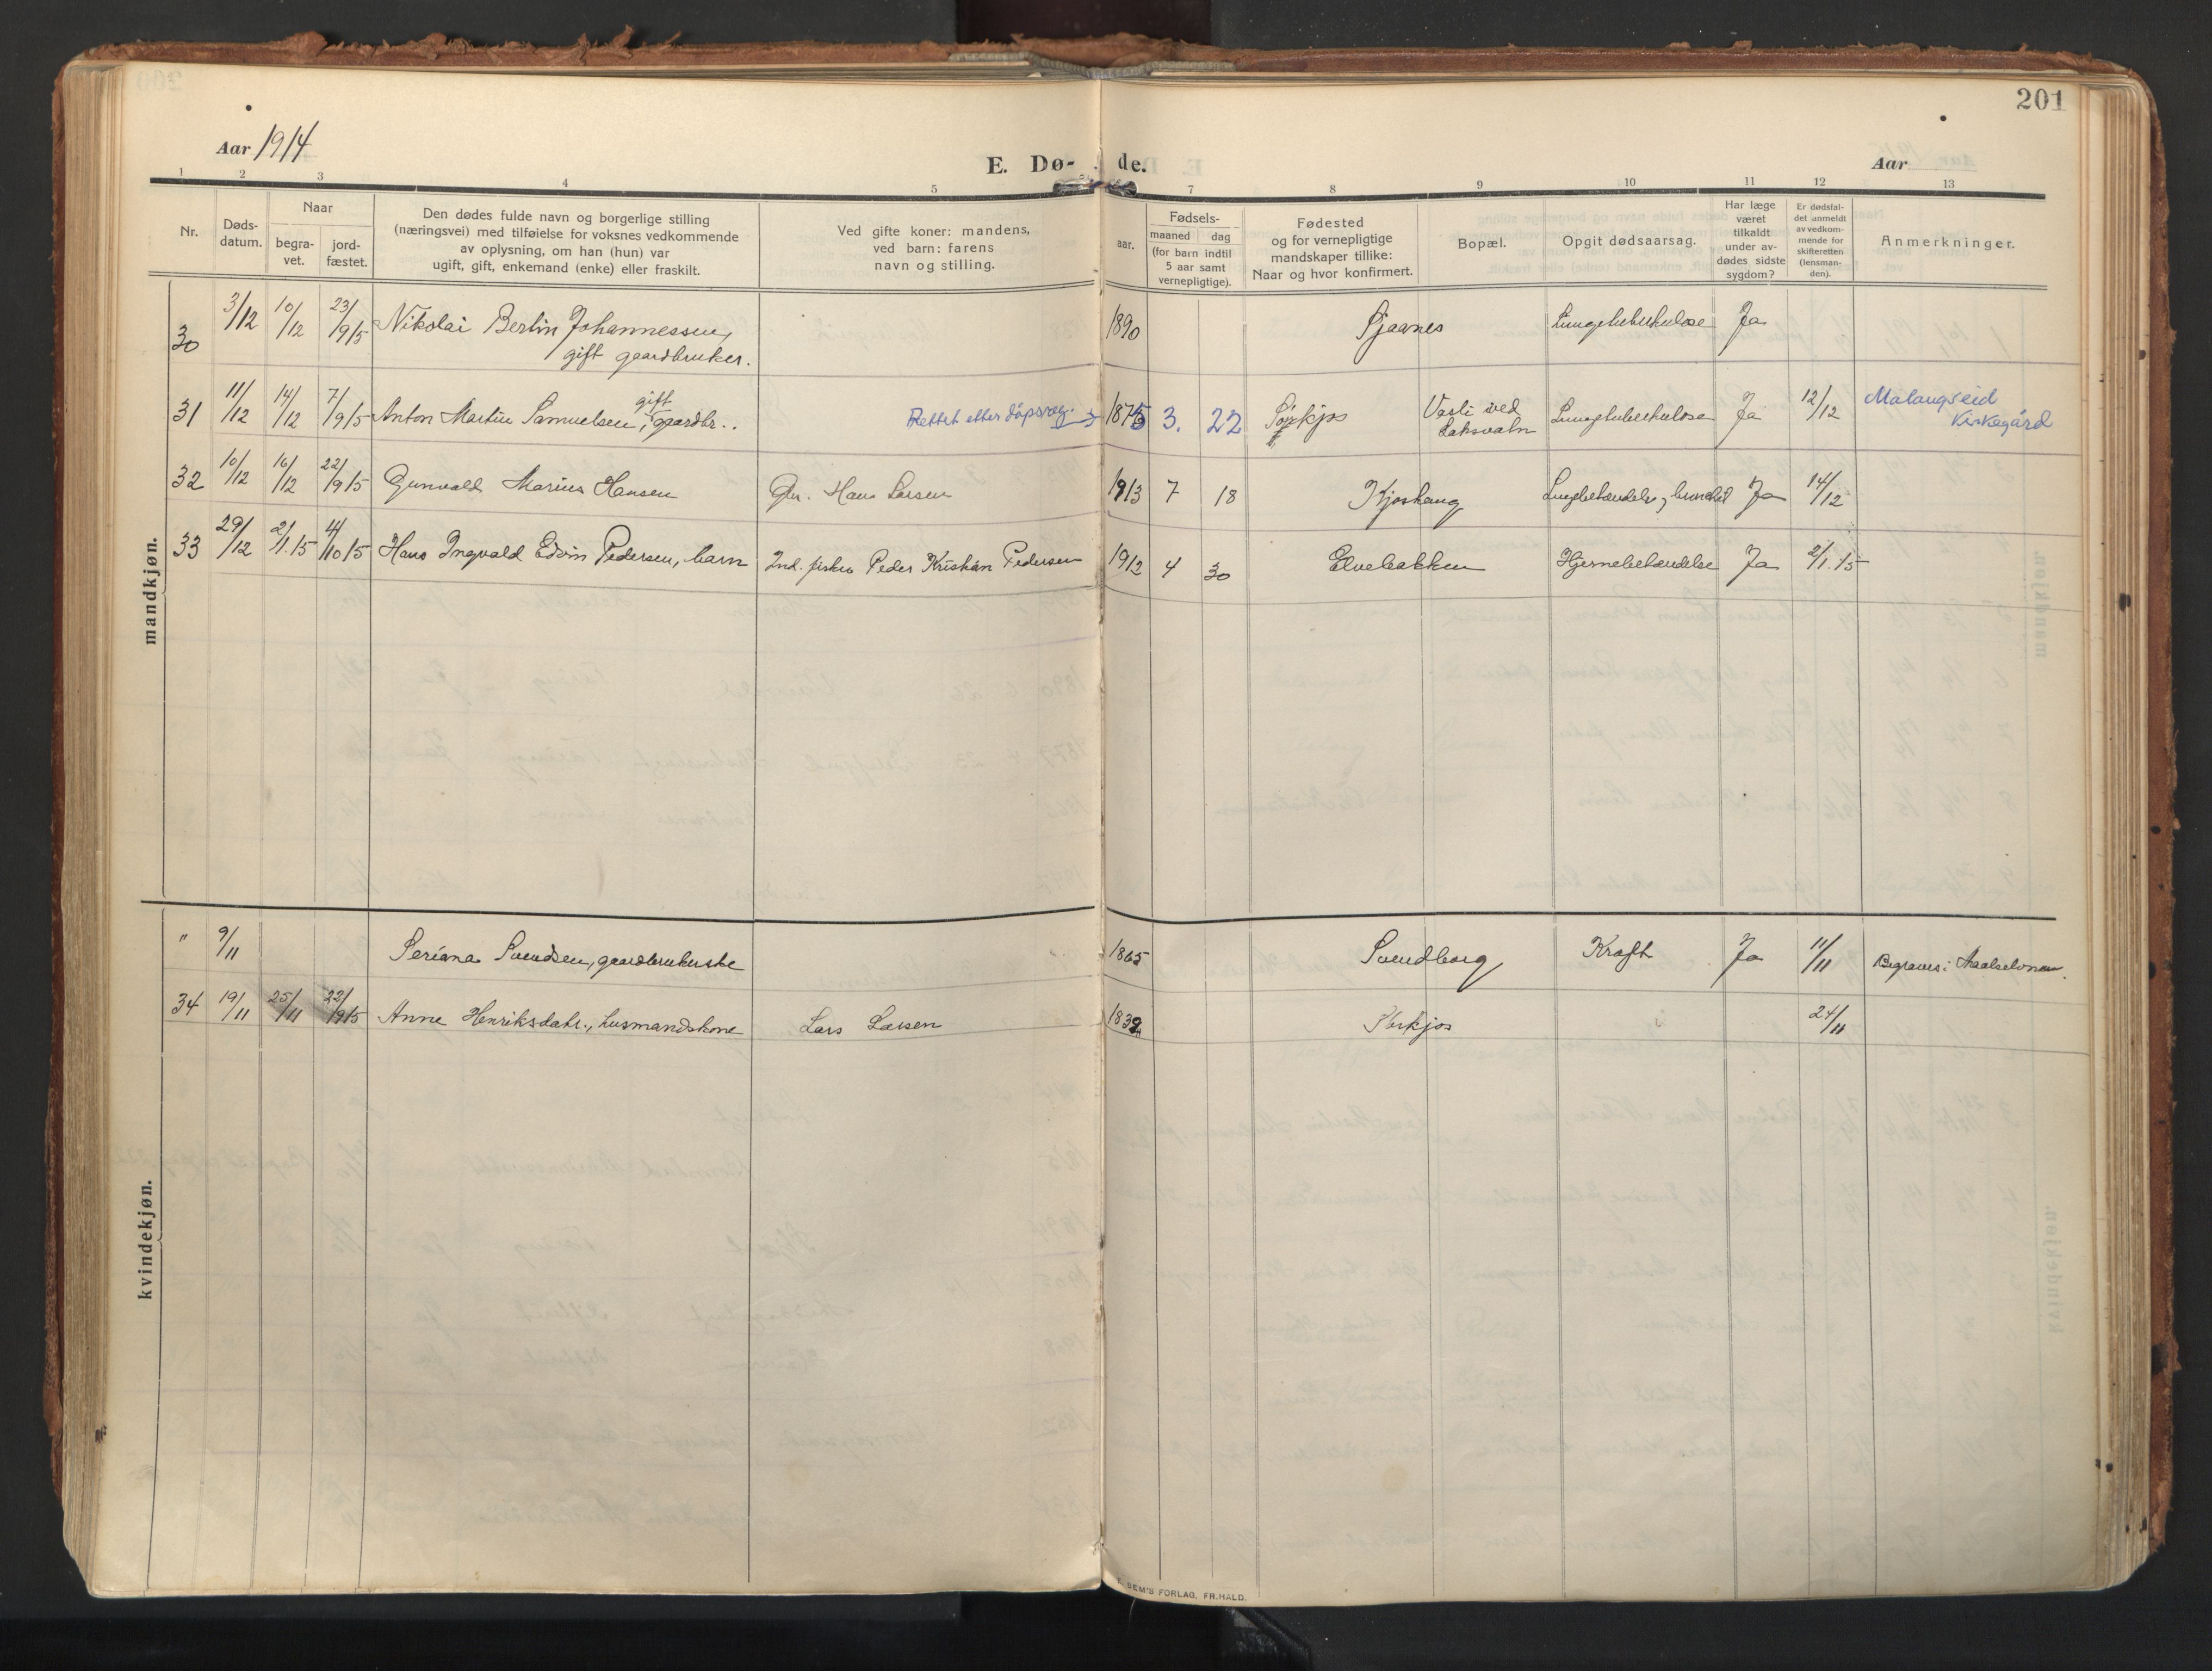 201
Aar 1914
E. Dø- de.
Aar
1 2 3 4 5 7 8 9 10 11 12 13
Nr.
Døds-
datum.
Naar
begra-
vet.
jord-
fæstet.
Den dødes fulde navn og borgerlige stilling
(næringsvei) med tilføielse for voksnes vedkommende
av oplysning, om han (hun) var
ugift, gift, enkemand (enke) eller fraskilt.
Ved gifte koner: mandens,
ved barn: farens
navn og stilling.
aar.
Fødsels-
maaned dag
(for barn indtil
5 aar samt
vernepligtige).
Fødested
og for vernepligtige
mandskaper tillike:
Naar og hvor konfirmert.
Bopæl.
Opgit dødsaarsag.
Har læge
været
tilkaldt
under av-
dødes sidste
sygdom?
Er dødsfal-
det anmeldt
av vedkom-
mende for
skifteretten
(lensman-
den).
Anmerkninger.
mandkjøn.
30 3/12 10/12 23/9 15 Nikolai Berlin Johannessen, 1890 Sjaanes Lungetuberkulose Ja
gift gaardbruker.
31 11/12 14/12 7/9 15 Anton Martin Samuelsen, gift gaardbr.. Rettet etter dåpsreg. 1875 3. 22 Sørkjos Vestli ved Lungetuberkulose Ja 12/12 Malangseid
Laksvatn Kirkegård
32 10/12 16/12 22/9 15 Gunvald Marius Hansen Gbr. Hans Larsen 1913 7 18 Kjoshaug Ja 14/12
33 29/12 2/1.15 4/10 15 Hans Ingvald Edvin Pedersen, barn Ind. fisker Peder Kristian Pedersen 1912 4 30 Elvebakken Hjernebetændelse Ja 2/1.15
kvindekjøn.
" 9/11 Seriana Svendsen, gaardbrukerske 1865 Svendborg Kræft Ja 11/11 Begraves i Maalselven.
34 19/11 25/11 22/9 15 Anne Henriksdatr., husmandskone Lars Larsen 1832 Sørkjos 24/11
SEM'S FORLAG, FR.HALD.